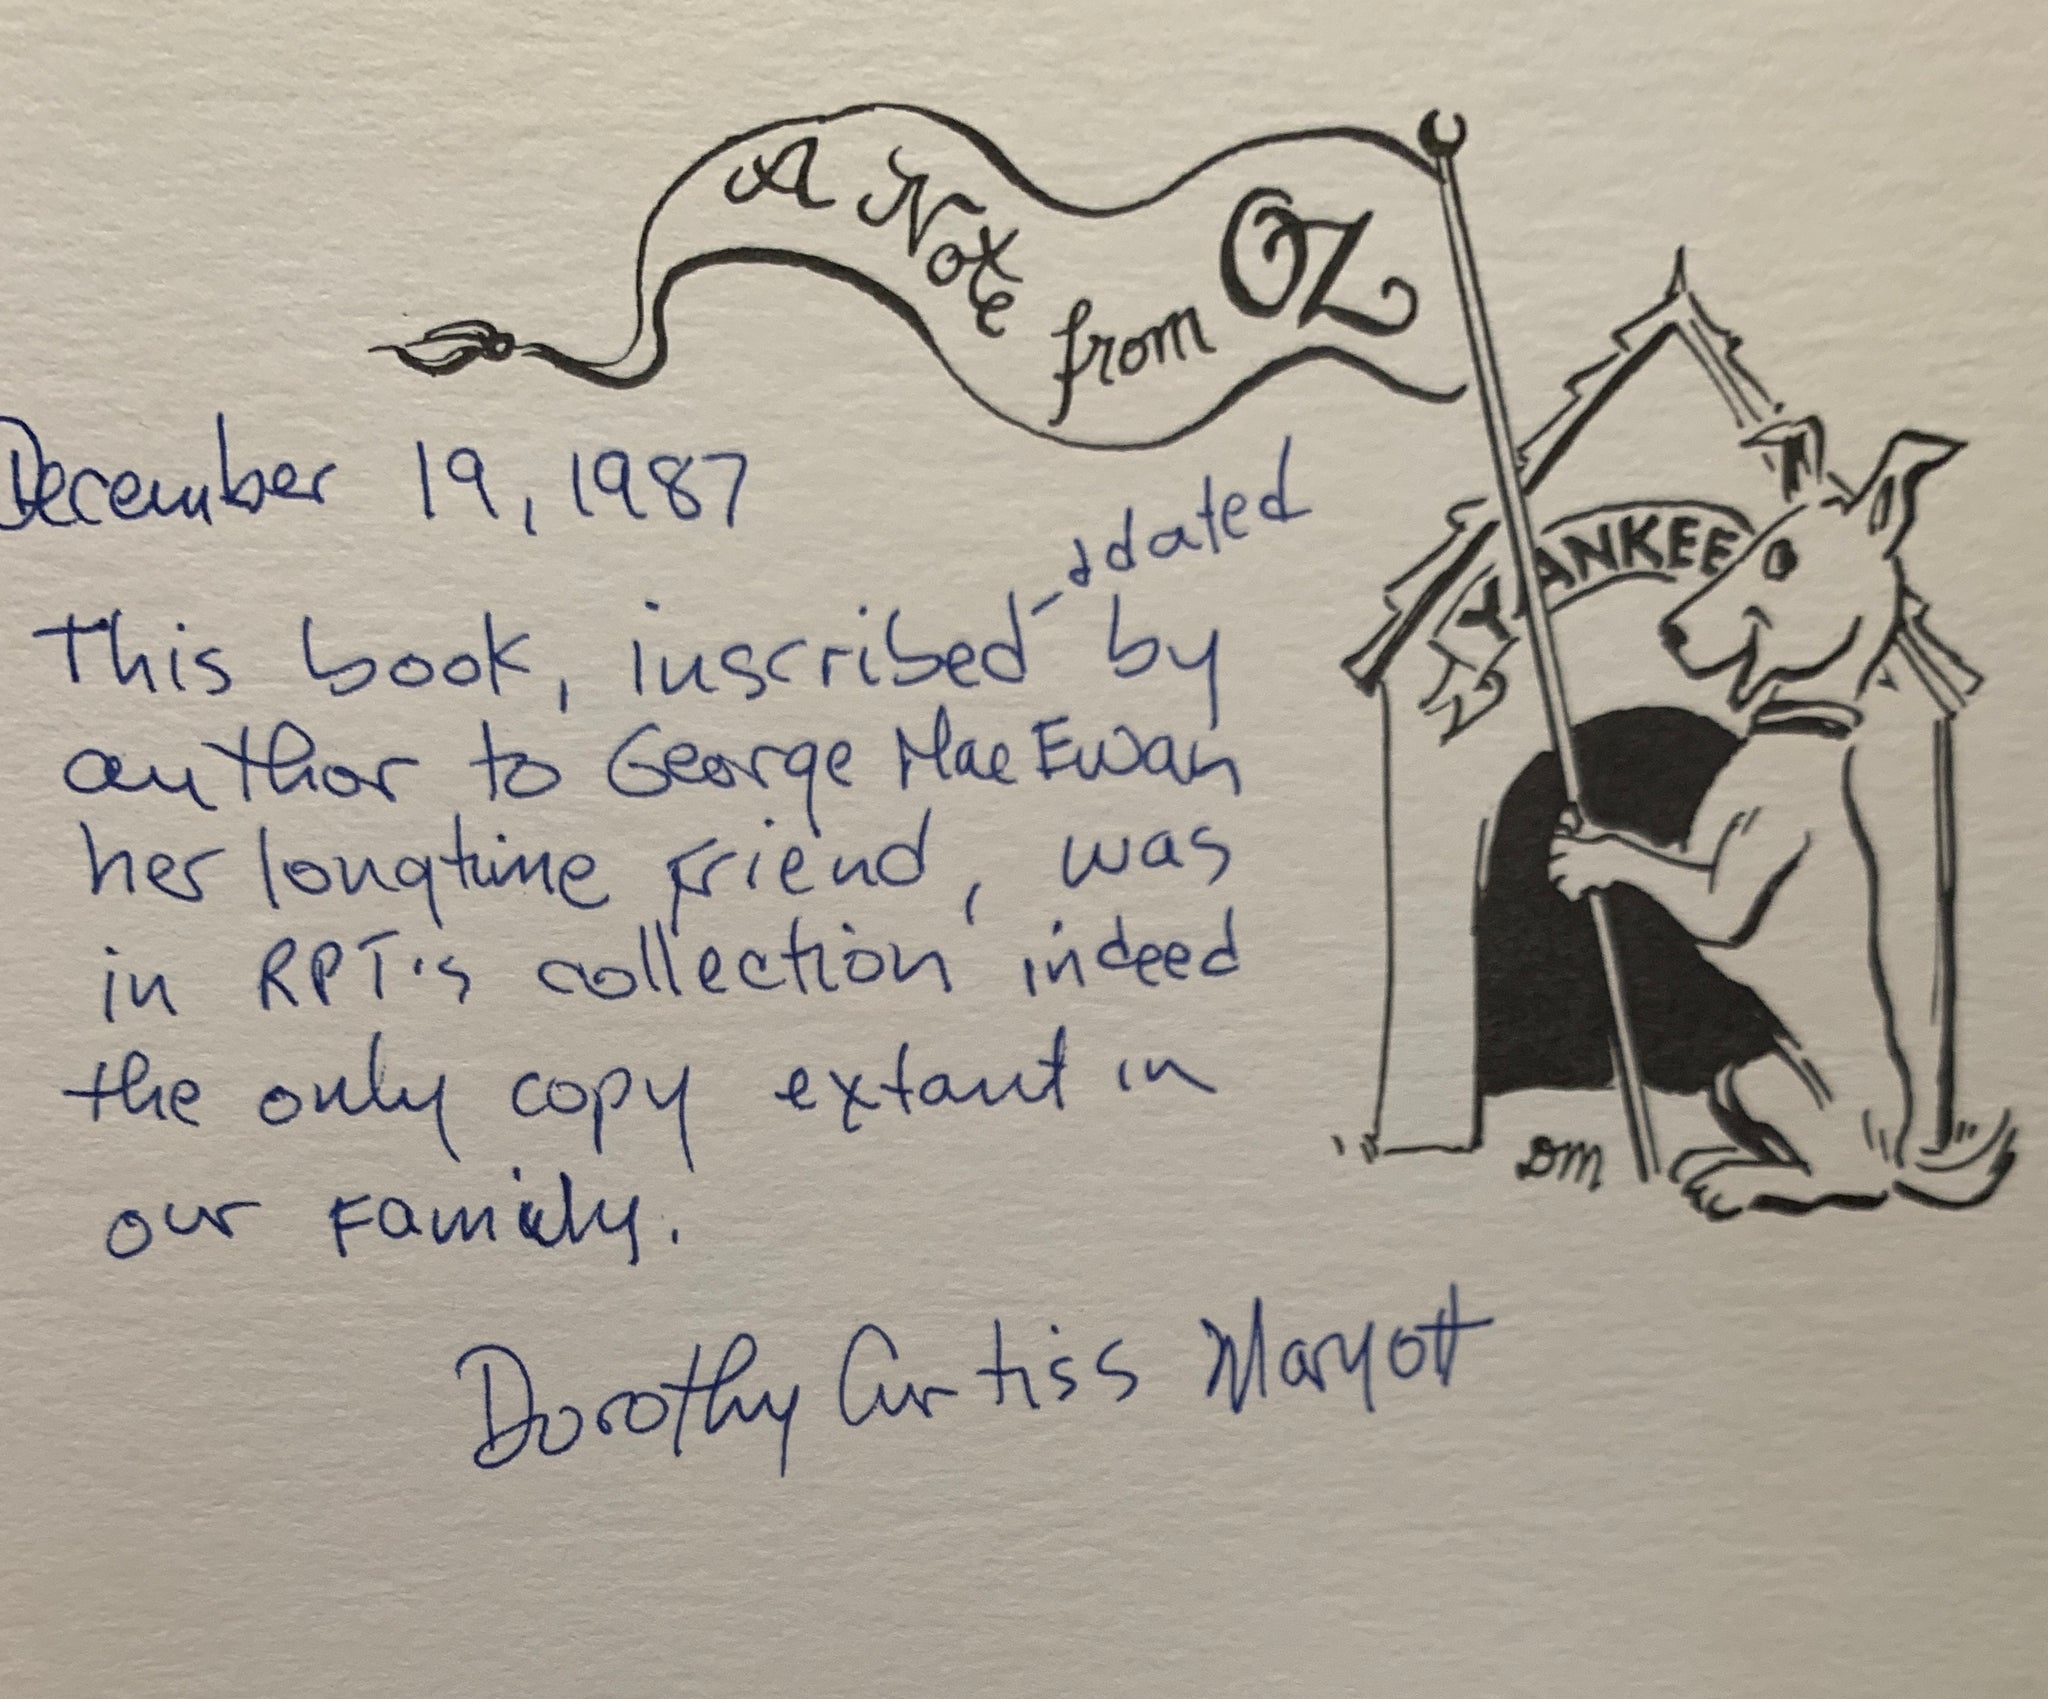 A Note from OZ
YANKEE
December 19, 1987
& dated
This book, inscribed by
author to George MacEwan
her longtime friend, was
in RPT's collection indeed
the only copy extant in
our family.
DM
Dorothy Curtiss Maryott